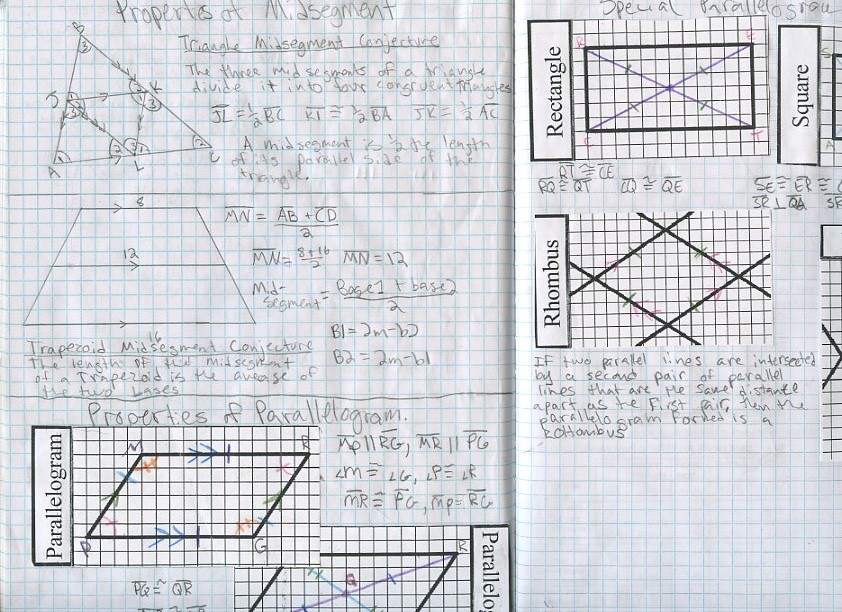 Properties of Midsegment
Triangle Midsegment Conjecture
The three midsegments of a triangle
divide it into four congruent triangles
JL = ½ BC KL ≅ ½ BA JK = ½ AC
A midsegment is ½ the length
of its parallel side of the
triangle.
B
3
J
K
A
L
C
8
12
16
MN = AB + CD
2
MN = 8+16
2
MN = 12
Mid-
segment = Base1 + base2
2
B1 = 2m-b2
B2 = 2m-b1
Trapezoid Midsegment Conjecture
The length of the midsegment
of a Trapezoid is the average of
the two bases
Properties of Parallelogram.
Parallelogram
M
R
P
G
MP || RG, MR || PG
∠M ≅ ∠G, ∠P ≅ ∠R
MR ≅ PG, MP = RG
PQ ≅ QR
Q
R
Parallelo
Special Parallelogram
Rectangle
R
E
C
T
RT ≅ CE
RQ ≅ QT CQ ≅ QE
Square
S
A
SE ≅ ER ≅
SR ⊥ QA SR
Rhombus
If two parallel lines are intersected
by a second pair of parallel
lines that are the same distance
apart as the first pair, then the
parallelogram formed is a
Rohombus